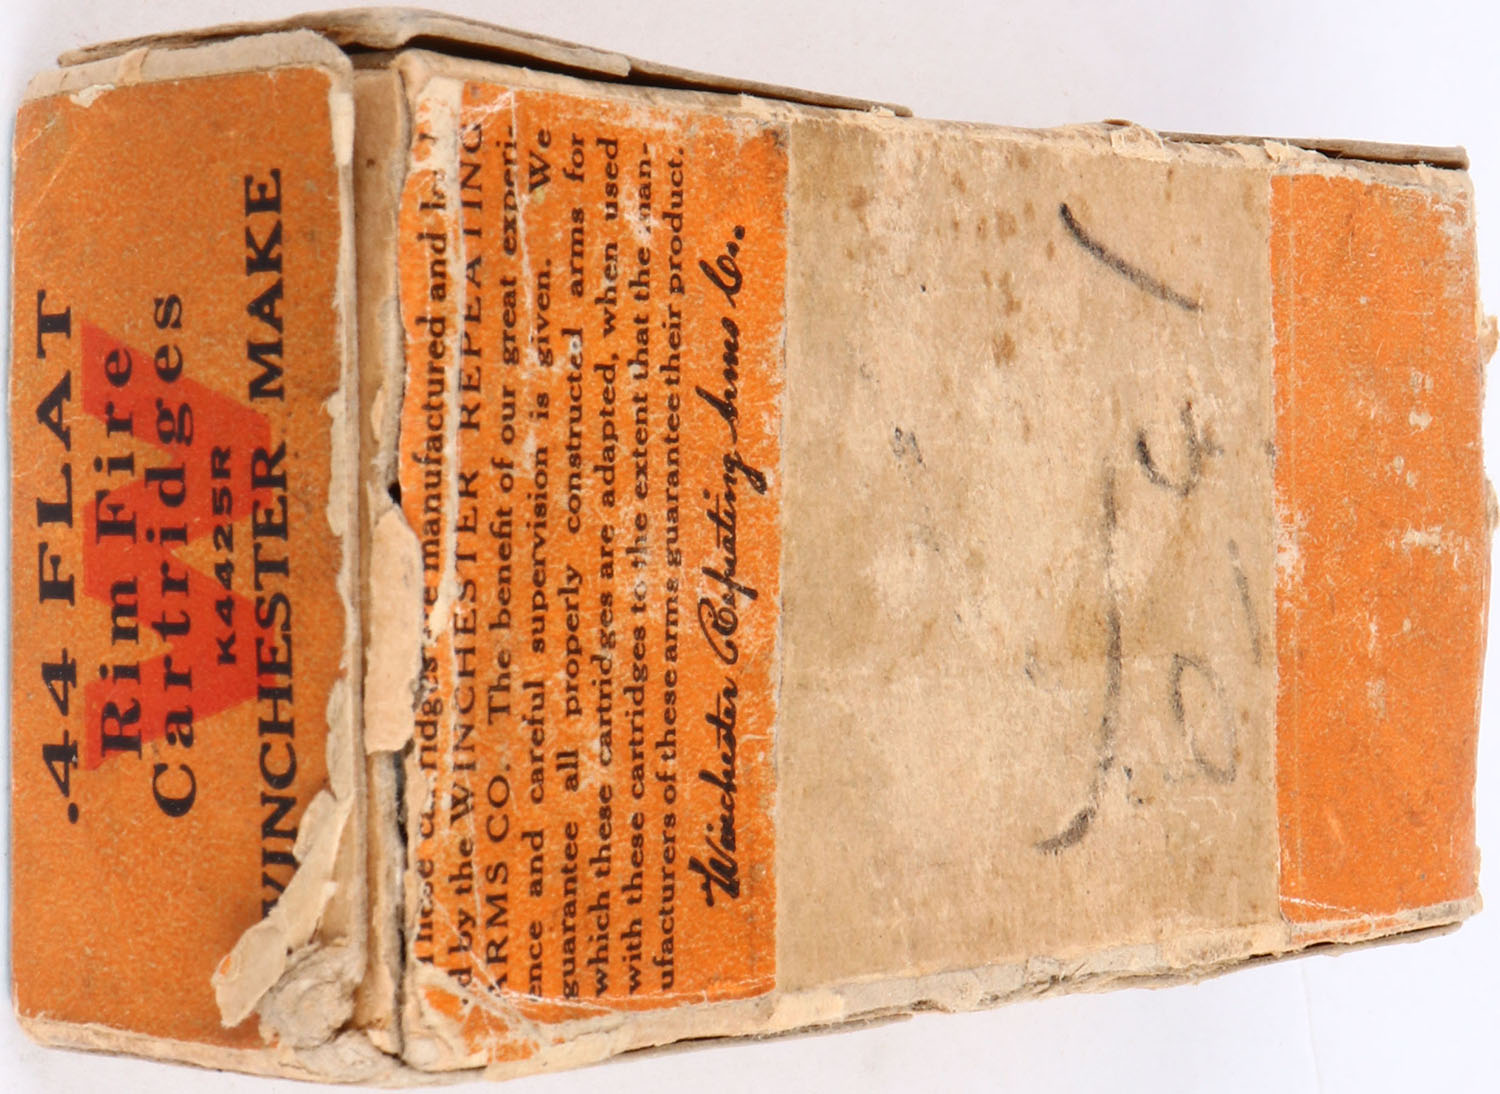 .44 FLAT
Rim Fire
Cartridges
K4425R
WINCHESTER MAKE
manufactured and
by the WINCHESTER REPEATING
ARMS CO. The benefit of our great experi-
ence and careful supervision is given. We
guarantee all properly constructed arms for
which these cartridges are adapted, when used
with these cartridges to the extent that the man-
ufacturers of these arms guarantee their product.
Winchester Repeating Arms Co.